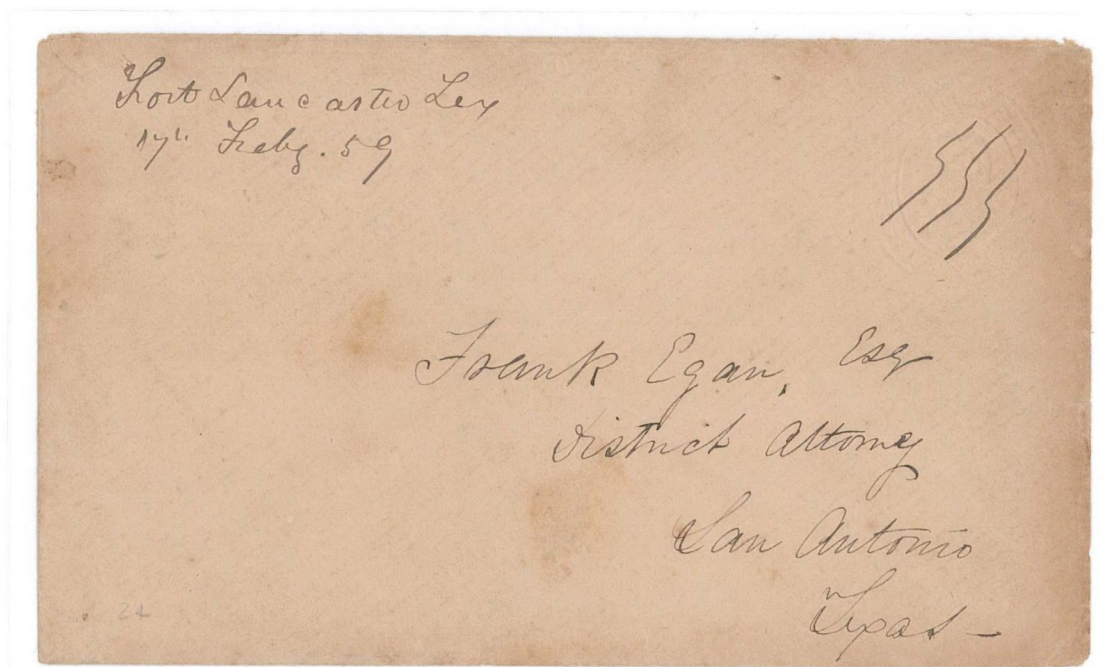 Fort Lancaster Tex
17th Feby. 59
Frank Egan, Esq
District Attorney
San Antonio
Texas -
24